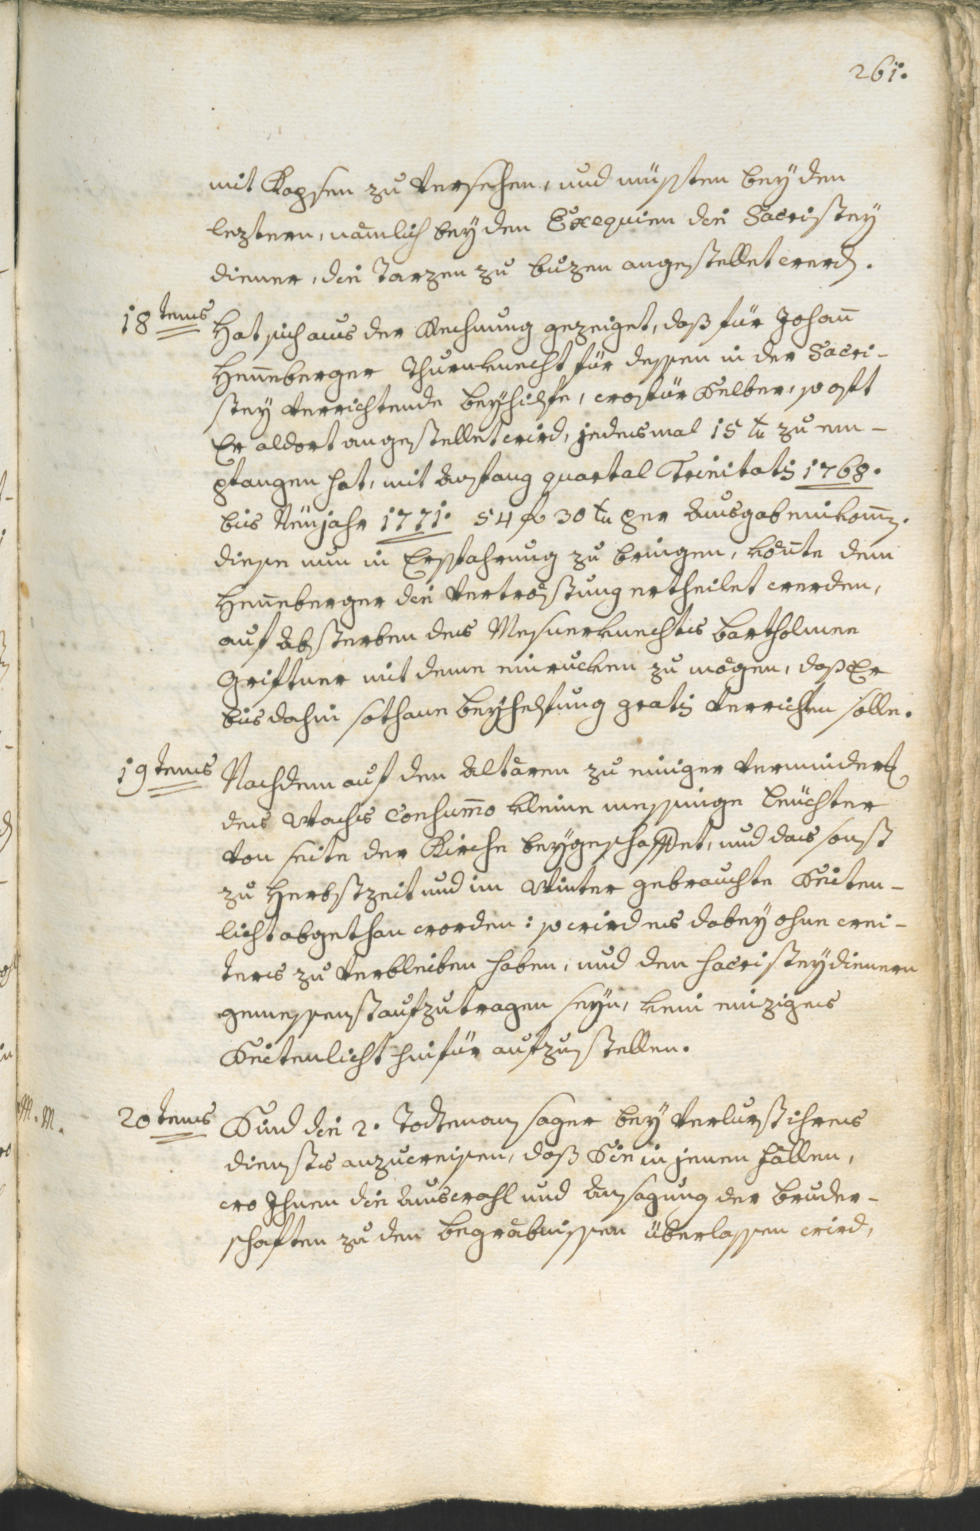 261.
mit Kapsen zu versehen, und müssten bey den
leztern, nämlich bey den Exequien die Sacristey
diener, die Tarzen zu buzen angestellet werd.
18tens Hat sich aus der Rechnung gezeiget, daß für Johan̄
Hen̄eberger Thurnknecht für dessen in der Sacri-
stey verrichtende beyhilfe, wofür Selber, so oft
Er aldort angestellet wird, jedesmal 15 xr zu em-
pfangen hat, mit Anfang quartal Trinitatis 1768.
bis Neüjahr 1771. 54 fl 30 xr per Ausgab einkom̄.
diese nun in Ersparung zu bringen, kön̄te dem
Hen̄eberger die Vertröstung ertheilet werden,
auf Absterben des Messnerknechts Bartholmee
Griftner mit deme einrucken zu mögen, daß Er
bis dahin sothane beyhelfung gratis verrichten solle.
19tens Nachdem auf den Altären zu einiger Verminder
des Wachs Consum̄o kleine messinge Leüchter
von seite der Kirche beygeschaffet, und das sonst
zu Herbstzeit und im Winter gebrauchte Seiten-
licht abgethan worden: so wird es dabey ohne wei-
ters zu verbleiben haben, und den Sacristeydienern
gemessenst aufzutragen seyn, kein einziges
Seitenlicht hinfür aufzustellen.
20tens Sind die 2. Todtenansager bey Verlurst ihres
diensts anzuweisen, daß Sie in jenen fällen,
wo Ihnen die Auswahl und Ansagung der bruder-
schaften zu den begräbnissen überlassen wird,